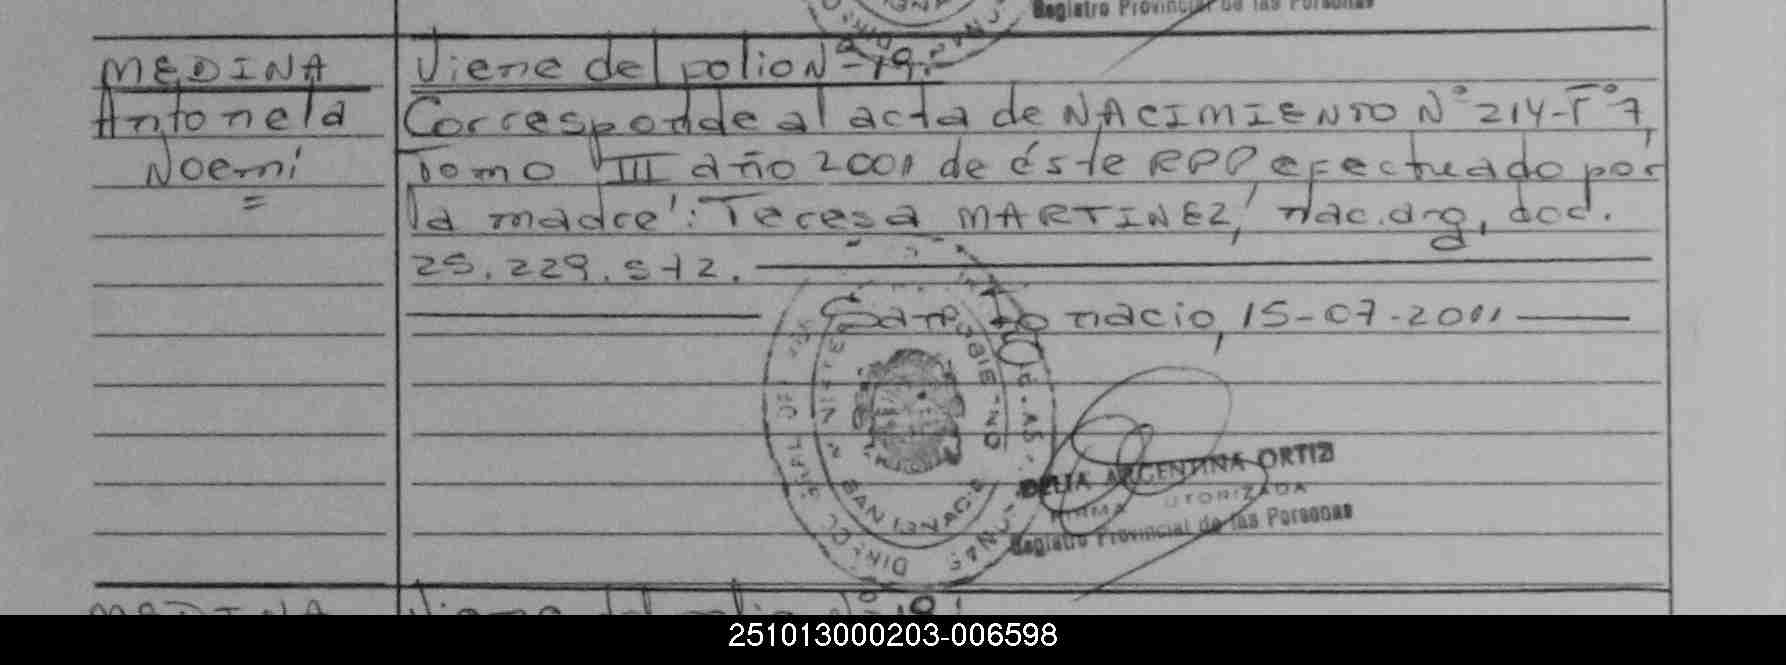 Registro Provincial de las Personas
MEDINA
Antonela
Noemi
=
Viene del folio Nº 19:-
Corresponde al acta de NACIMIENTO Nº 214-Fº 7,
Tomo III año 2001 de éste RPP, efectuado por
la madre: Teresa MARTINEZ, nac. arg, doc.
25.229.512.
San Ignacio, 15-07-2011
SAN IGNACIO
DELIA ARGENTINA ORTIZ
FIRMA AUTORIZADA
Registro Provincial de las Personas
MEDINA
251013000203-006598